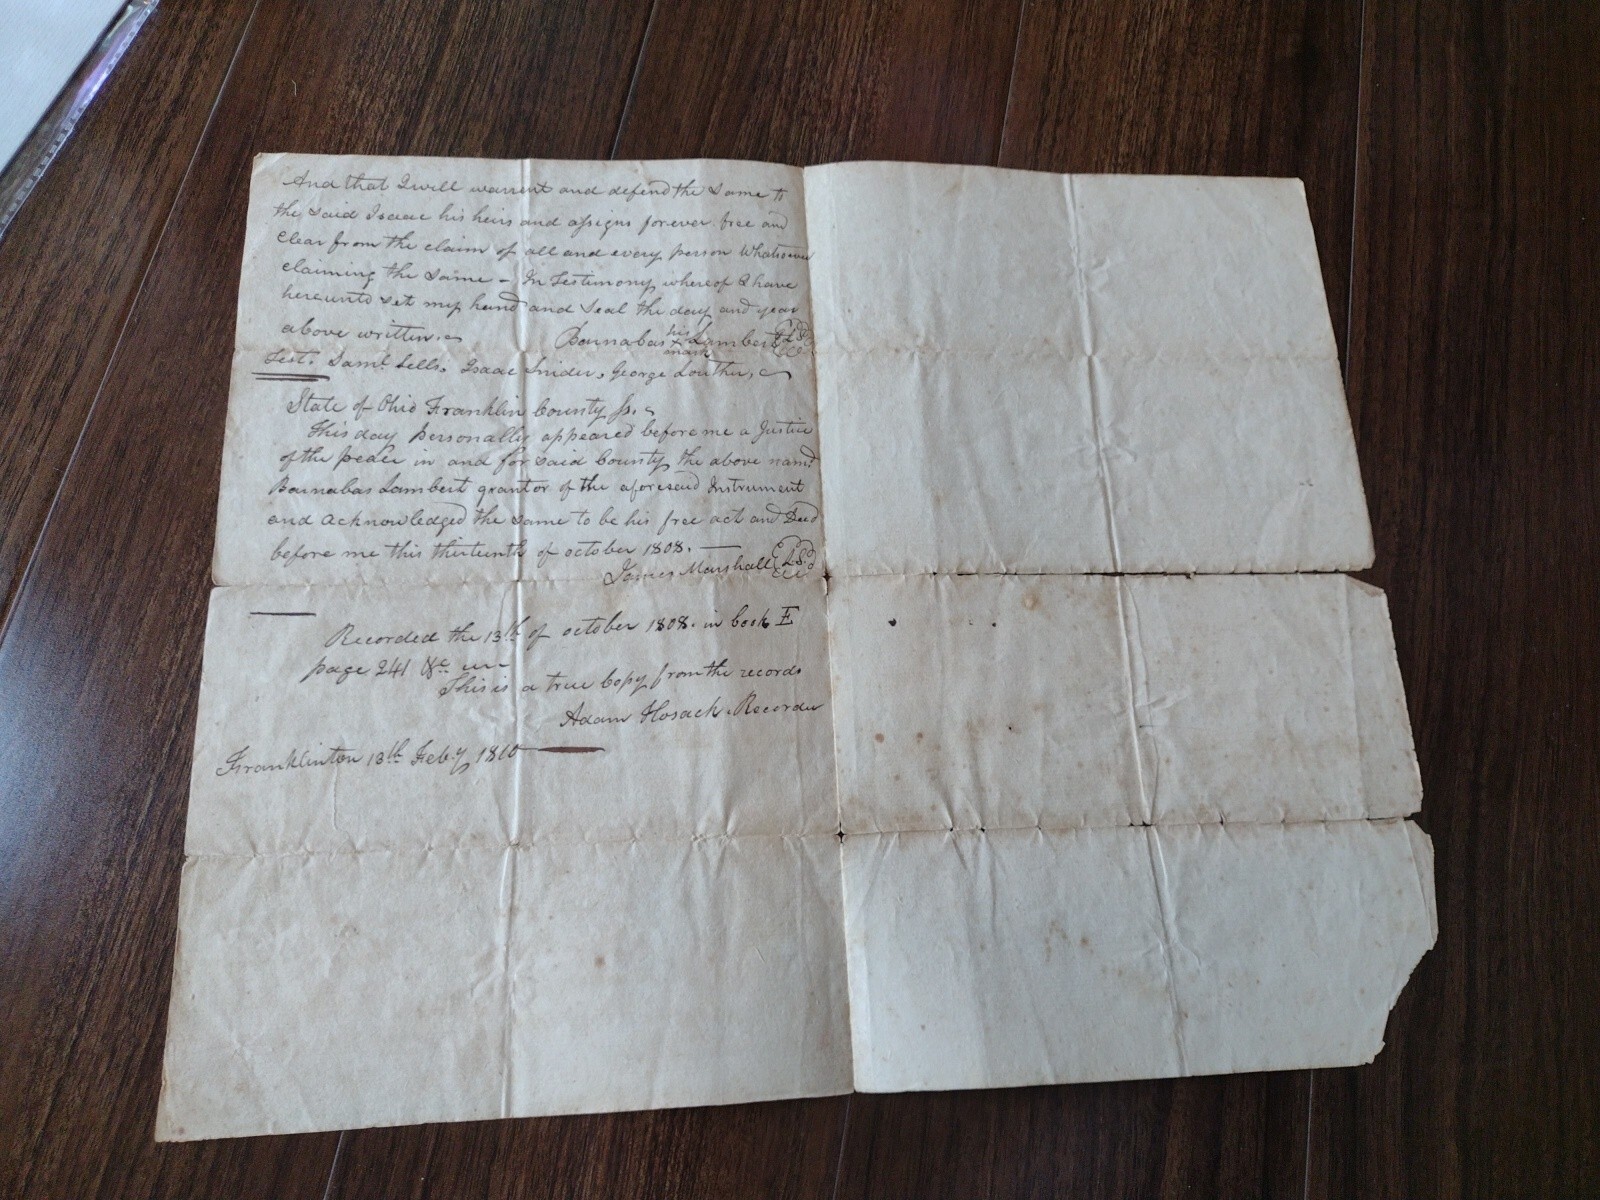 And that I will warrent and defend the same to
the said Isaac his heirs and assigns for ever free and
clear from the claim of all and every person whatsoever
claiming the same - In Testimony whereof I have
hereunto set my hand and seal the day and year
above written.
his
Barnabas X Lambert L.S.
mark
Test. Saml. Sells. Isaac Snider, George Louther,
State of Ohio Franklin County ss.
This day personally appeared before me a Justice
of the peace in and for said County the above namd
Barnabas Lambert grantor of the aforesaid Instrument
and acknowledged the same to be his free act and Deed
before me this thirteenth of october 1808. —
James Marshall L.S.
Recorded the 13th of october 1808. in book E
page 241 &c
This is a true Copy from the records
Adam Hosack. Recorder
Franklinton 13th Feby 1810 —